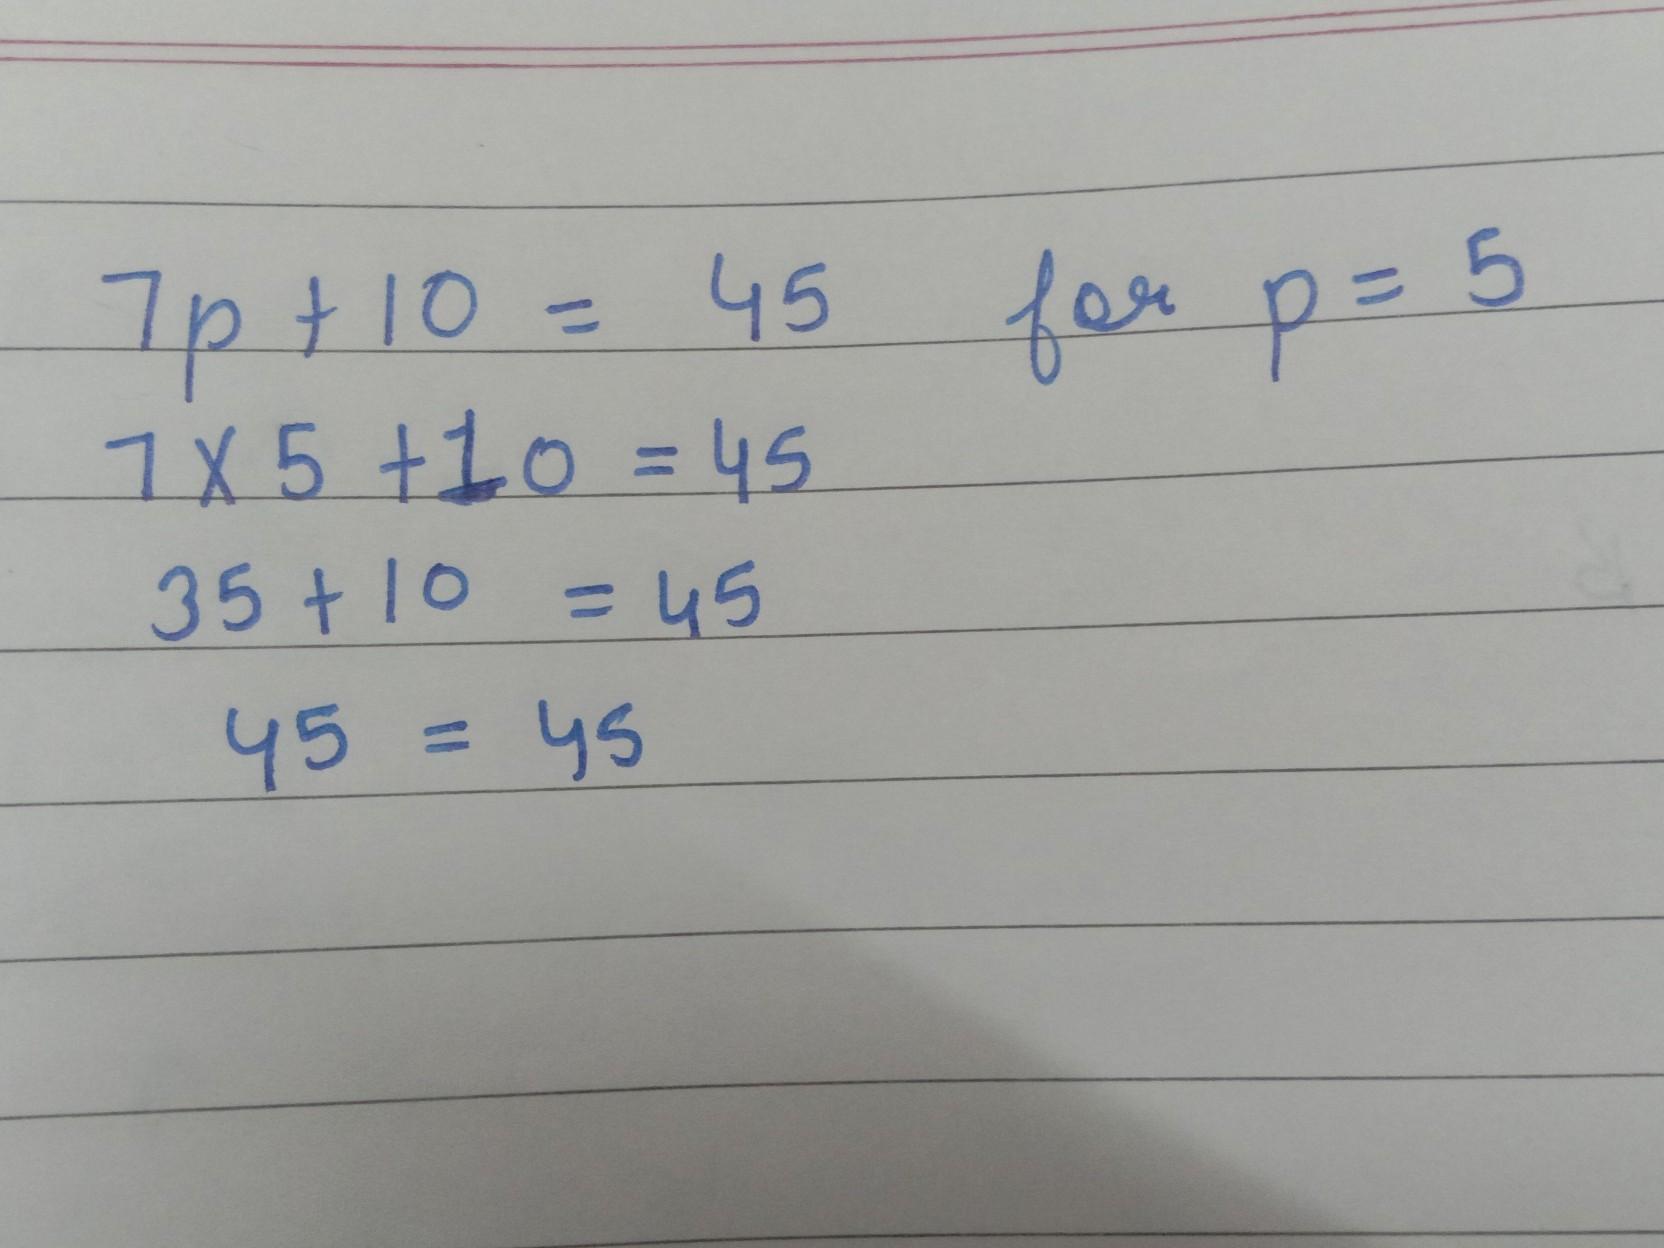 7p + 10 = 45 for p = 5
7 X 5 + 10 = 45
35 + 10 = 45
45 = 45